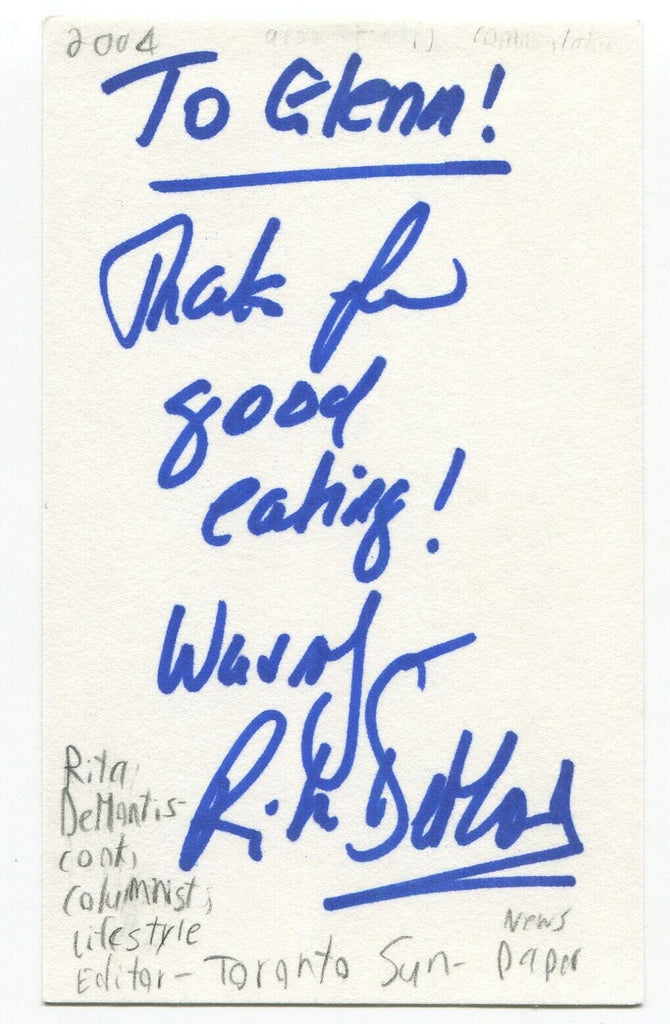 2004
To Glenn!
Thanks for
good
eating!
Warmly
Rita DeMontis
Rita
DeMontis-
cook,
columnist,
Lifestyle
Editor- Toronto Sun- News
paper